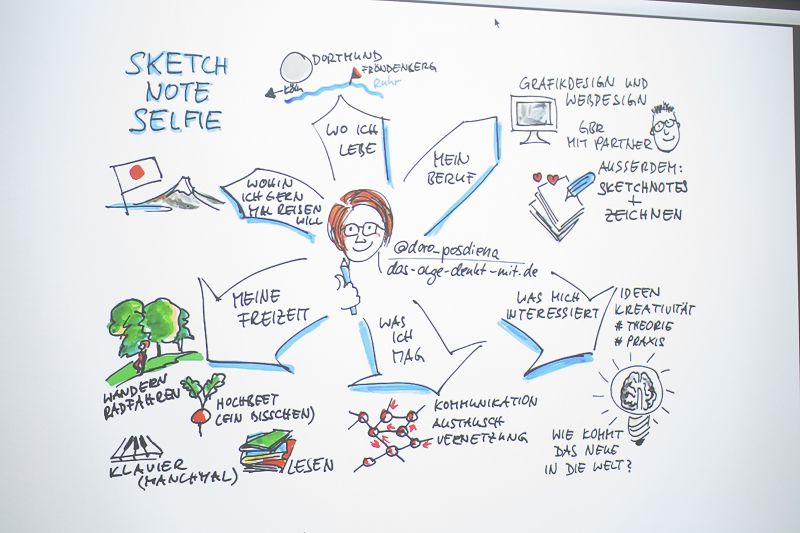 SKETCH
NOTE
SELFIE
DORTMUND
FRÖNDENBERG
KÖLN
Ruhr
WO ICH
LEBE
MEIN
BERUF
GRAFIKDESIGN UND
WEBDESIGN
GBR
MIT PARTNER
AUSSERDEM:
SKETCHNOTES
+
ZEICHNEN
WOHIN
ICH GERN
MAL REISEN
WILL
@dora_posdiena
das-auge-denkt-mit.de
MEINE
FREIZEIT
WAS
ICH
MAG
WAS MICH
INTERESSIERT
IDEEN
KREATIVITÄT
# THEORIE
# PRAXIS
WANDERN
RADFAHREN
HOCHBEET
(EIN BISSCHEN)
KLAVIER
(MANCHMAL)
LESEN
KOMMUNIKATION
AUSTAUSCH
VERNETZUNG
WIE KOMMT
DAS NEUE
IN DIE WELT?